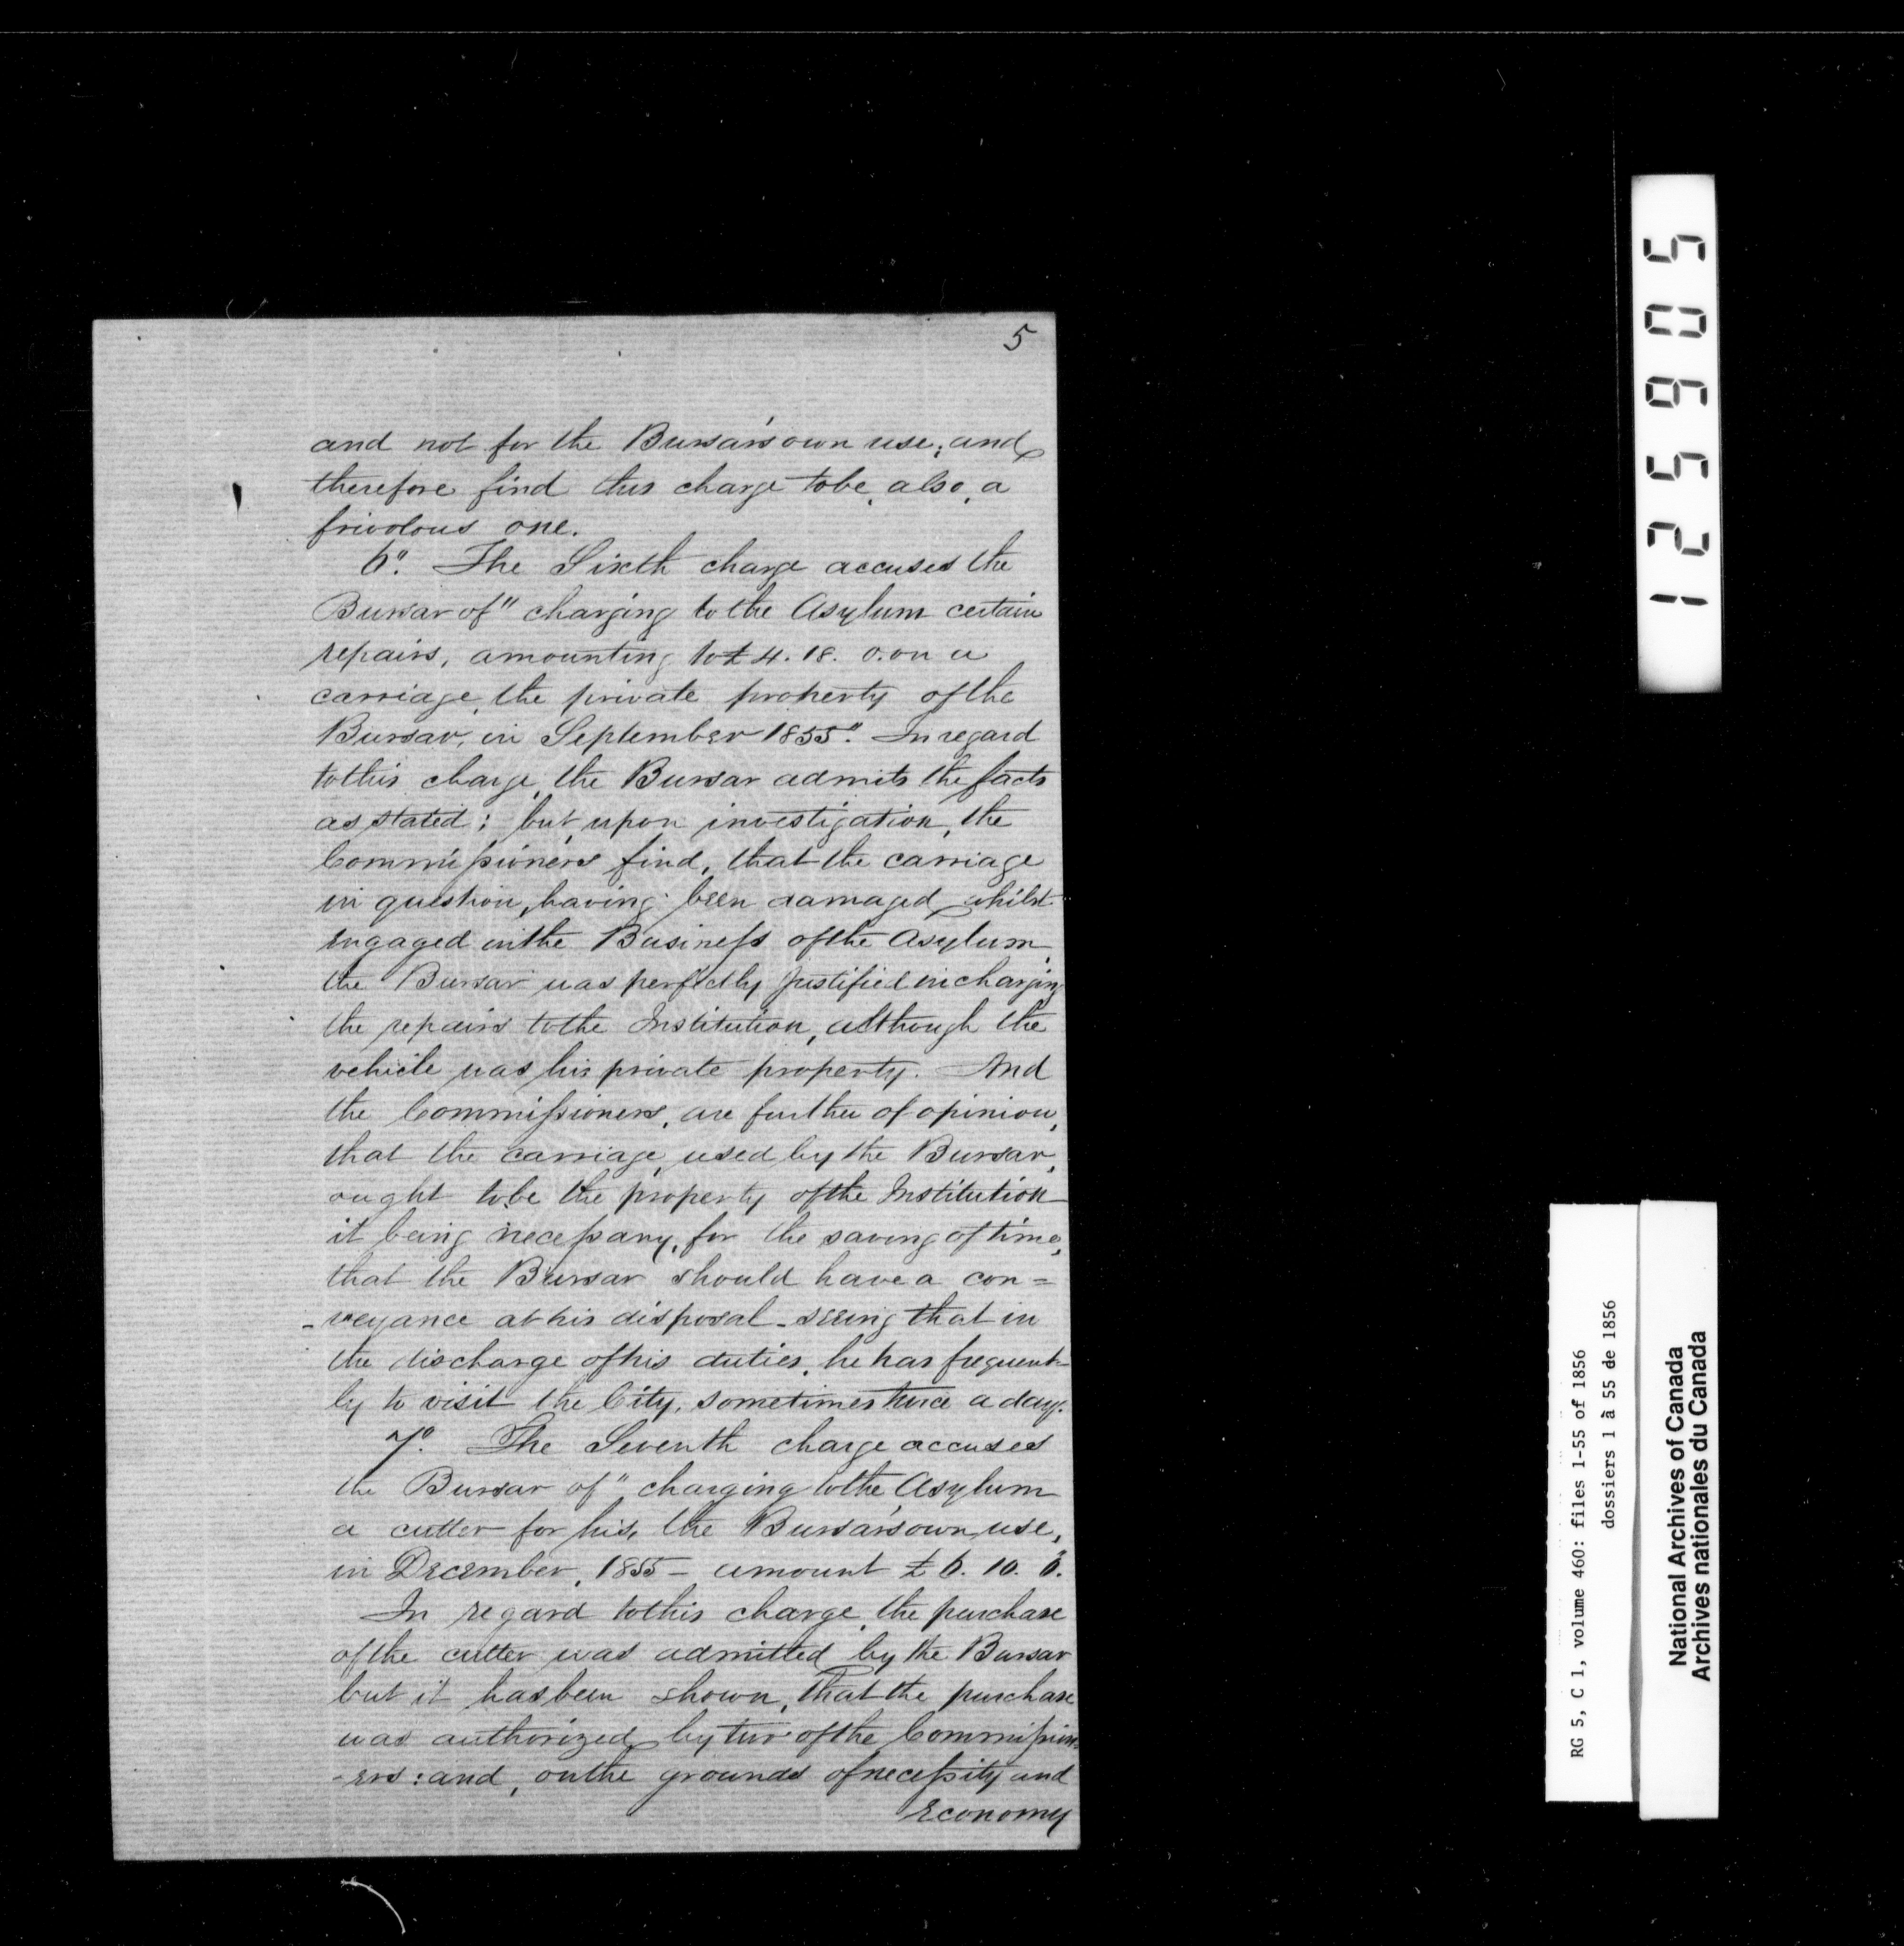 5
and not for the Bursar's own use; and
therefore find this charge to be, also, a
frivolous one.
6º. The Sixth charge accuses the
Bursar of "charging to the Asylum certain
repairs, amounting to £4. 18. 0. on a
carriage, the private property of the
Bursar, in September 1855". In regard
to this charge, the Bursar admits the facts
as stated; but, upon investigation, the
Commissioners find, that the carriage
in question, having been damaged whilst
engaged in the Business of the Asylum,
the Bursar was perfectly justified in charging
the repairs to the Institution, although the
vehicle was his private property. And
the Commissioners, are further of opinion,
that the carriage, used by the Bursar,
ought to be the property of the Institution
it being necessary, for the saving of time,
that the Bursar should have a con=
-veyance at his disposal - seeing that in
the discharge of his duties, he has frequent-
ly to visit the City, sometimes twice a day.
7º. The Seventh charge accuses
the Bursar of "charging to the Asylum
a cutter for his, the Bursar's own use,
in December, 1855 - amount £6. 10. 0".
In regard to this charge, the purchase
of the cutter was admitted by the Bursar
but it has been shown, that the purchase
was authorized by two of the Commission=
-ers: and, on the grounds of necessity and
Economy
125905
RG 5, C 1, volume 460: files 1-55 of 1856
dossiers 1 à 55 de 1856
National Archives of Canada
Archives nationales du Canada